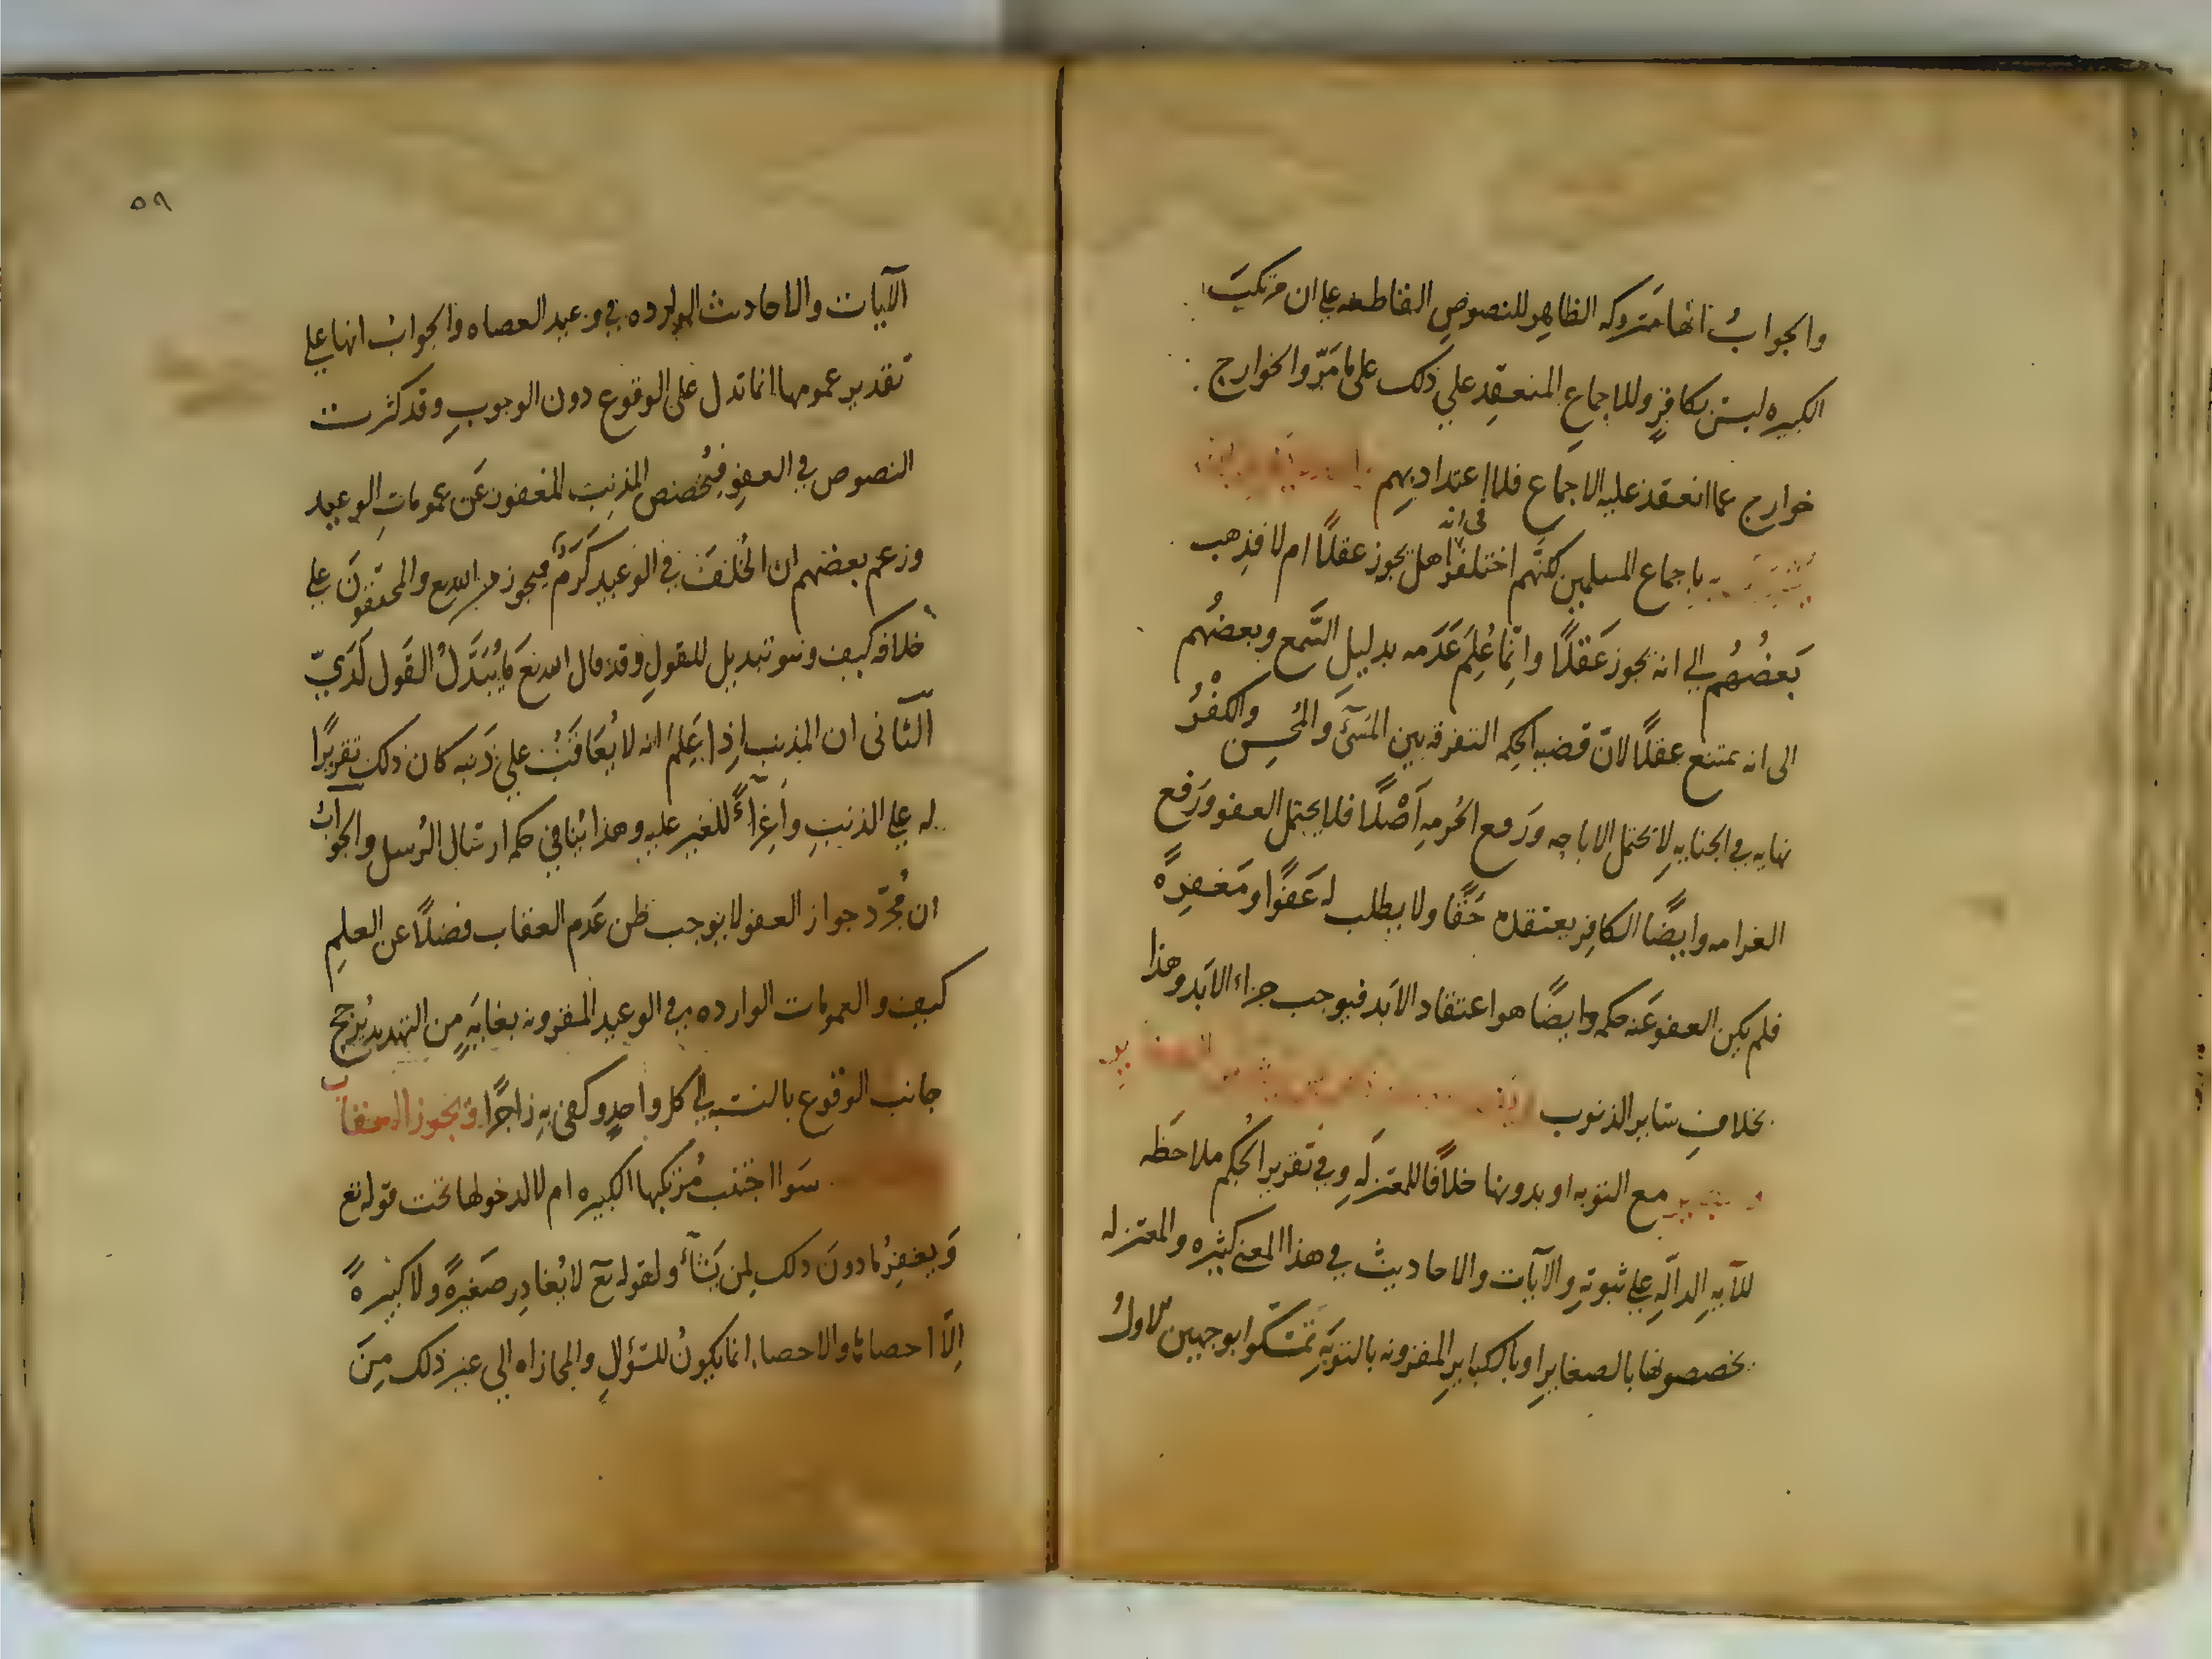 والجواب انها متروكه الظاهر للنصوص القاطعه على ان مرتكب
الكبيره ليس بكافر وللاجماع المنعقد على ذلك على ما مر والخوارج
خوارج عما انعقد عليه الاجماع فلا اعتداد بهم
باجماع المسلمين لكنهم اختلفوا في انه هل يجوز عقلا ام لا فذهب
بعضهم الي انه يجوز عقلا وانما علم عدمه بدليل السمع وبعضهم
الى انه يمتنع عقلا لان قضيه الحكمه التفرقه بين المسئ والمحسن والكفر
نهايه في الجنايه لا يحتمل الاباحه ورفع الحرمه اصلا فلا يحتمل العفو ورفع
الغرامه وايضا الكافر يعتقده حقا ولا يطلب له عفوا ومغفره
فلم يكن العفو عنه حكمه وايضا هو اعتقاد الابد فيوجب جزاء الابد وهذا
بخلاف ساير الذنوب
مع التوبه او بدونها خلافا للمعتزله وفي تقرير الحكم ملاحظه
للآيه الداله على ثبوته والآيات والاحاديث في هذا المعني كثيره والمعتزله
يخصصونها بالصغاير او بالكباير المقرونه بالتوبه تمسكوا بوجهين الاول
٥٩
الآيات والاحاديث الوارده في وعيد العصاه والجواب انها على
تقدير عمومها انما تدل على الوقوع دون الوجوب وقد كثرت
النصوص في العفو فيخصص المذنب المغفور عن عمومات الوعيد
وزعم بعضهم ان الخلف في الوعيد كرم فيجوز من الله تع والمحققون على
خلافه كيف وهو تبديل للقول وقد قال الله تع ما يبدل القول لدي
الثاني ان المذنب اذا علم انه لا يعاقب على ذنبه كان ذلك تقريرا
له على الذنب واغراء للغير عليه وهذا ينافي حكمه ارسال الرسل والجواب
ان مجرد جواز العفو لا يوجب ظن عدم العقاب فضلا عن العلم
كيف والعمومات الوارده في الوعيد المقرونه بغايه من التهديد يرجح
جانب الوقوع بالنسبه الي كل واحد وكفى به زاجرا ويجوز العقاب
سوا اجتنب مرتكبها الكبيره ام لا لدخولها تحت قوله تع
ويغفر ما دون ذلك لمن يشاء ولقوله تع لا يغادر صغيرة ولا كبيرة
الا احصاها والاحصاء انما يكون للسؤال والمجازاه الي غير ذلك من